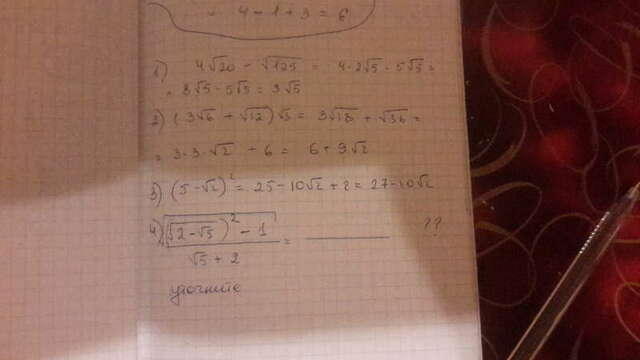 = 4 - 1 + 3 = 6
1) 4√20 - √125 = 4·2√5 - 5√5 =
= 8√5 - 5√5 = 3√5
2) (3√6 + √12)√3 = 3√18 + √36 =
= 3·3·√2 + 6 = 6 + 9√2
3) (5 - √2)² = 25 - 10√2 + 2 = 27 - 10√2
4) √(√2 - √5)² - 1 = ??
√5 + 2
уточните